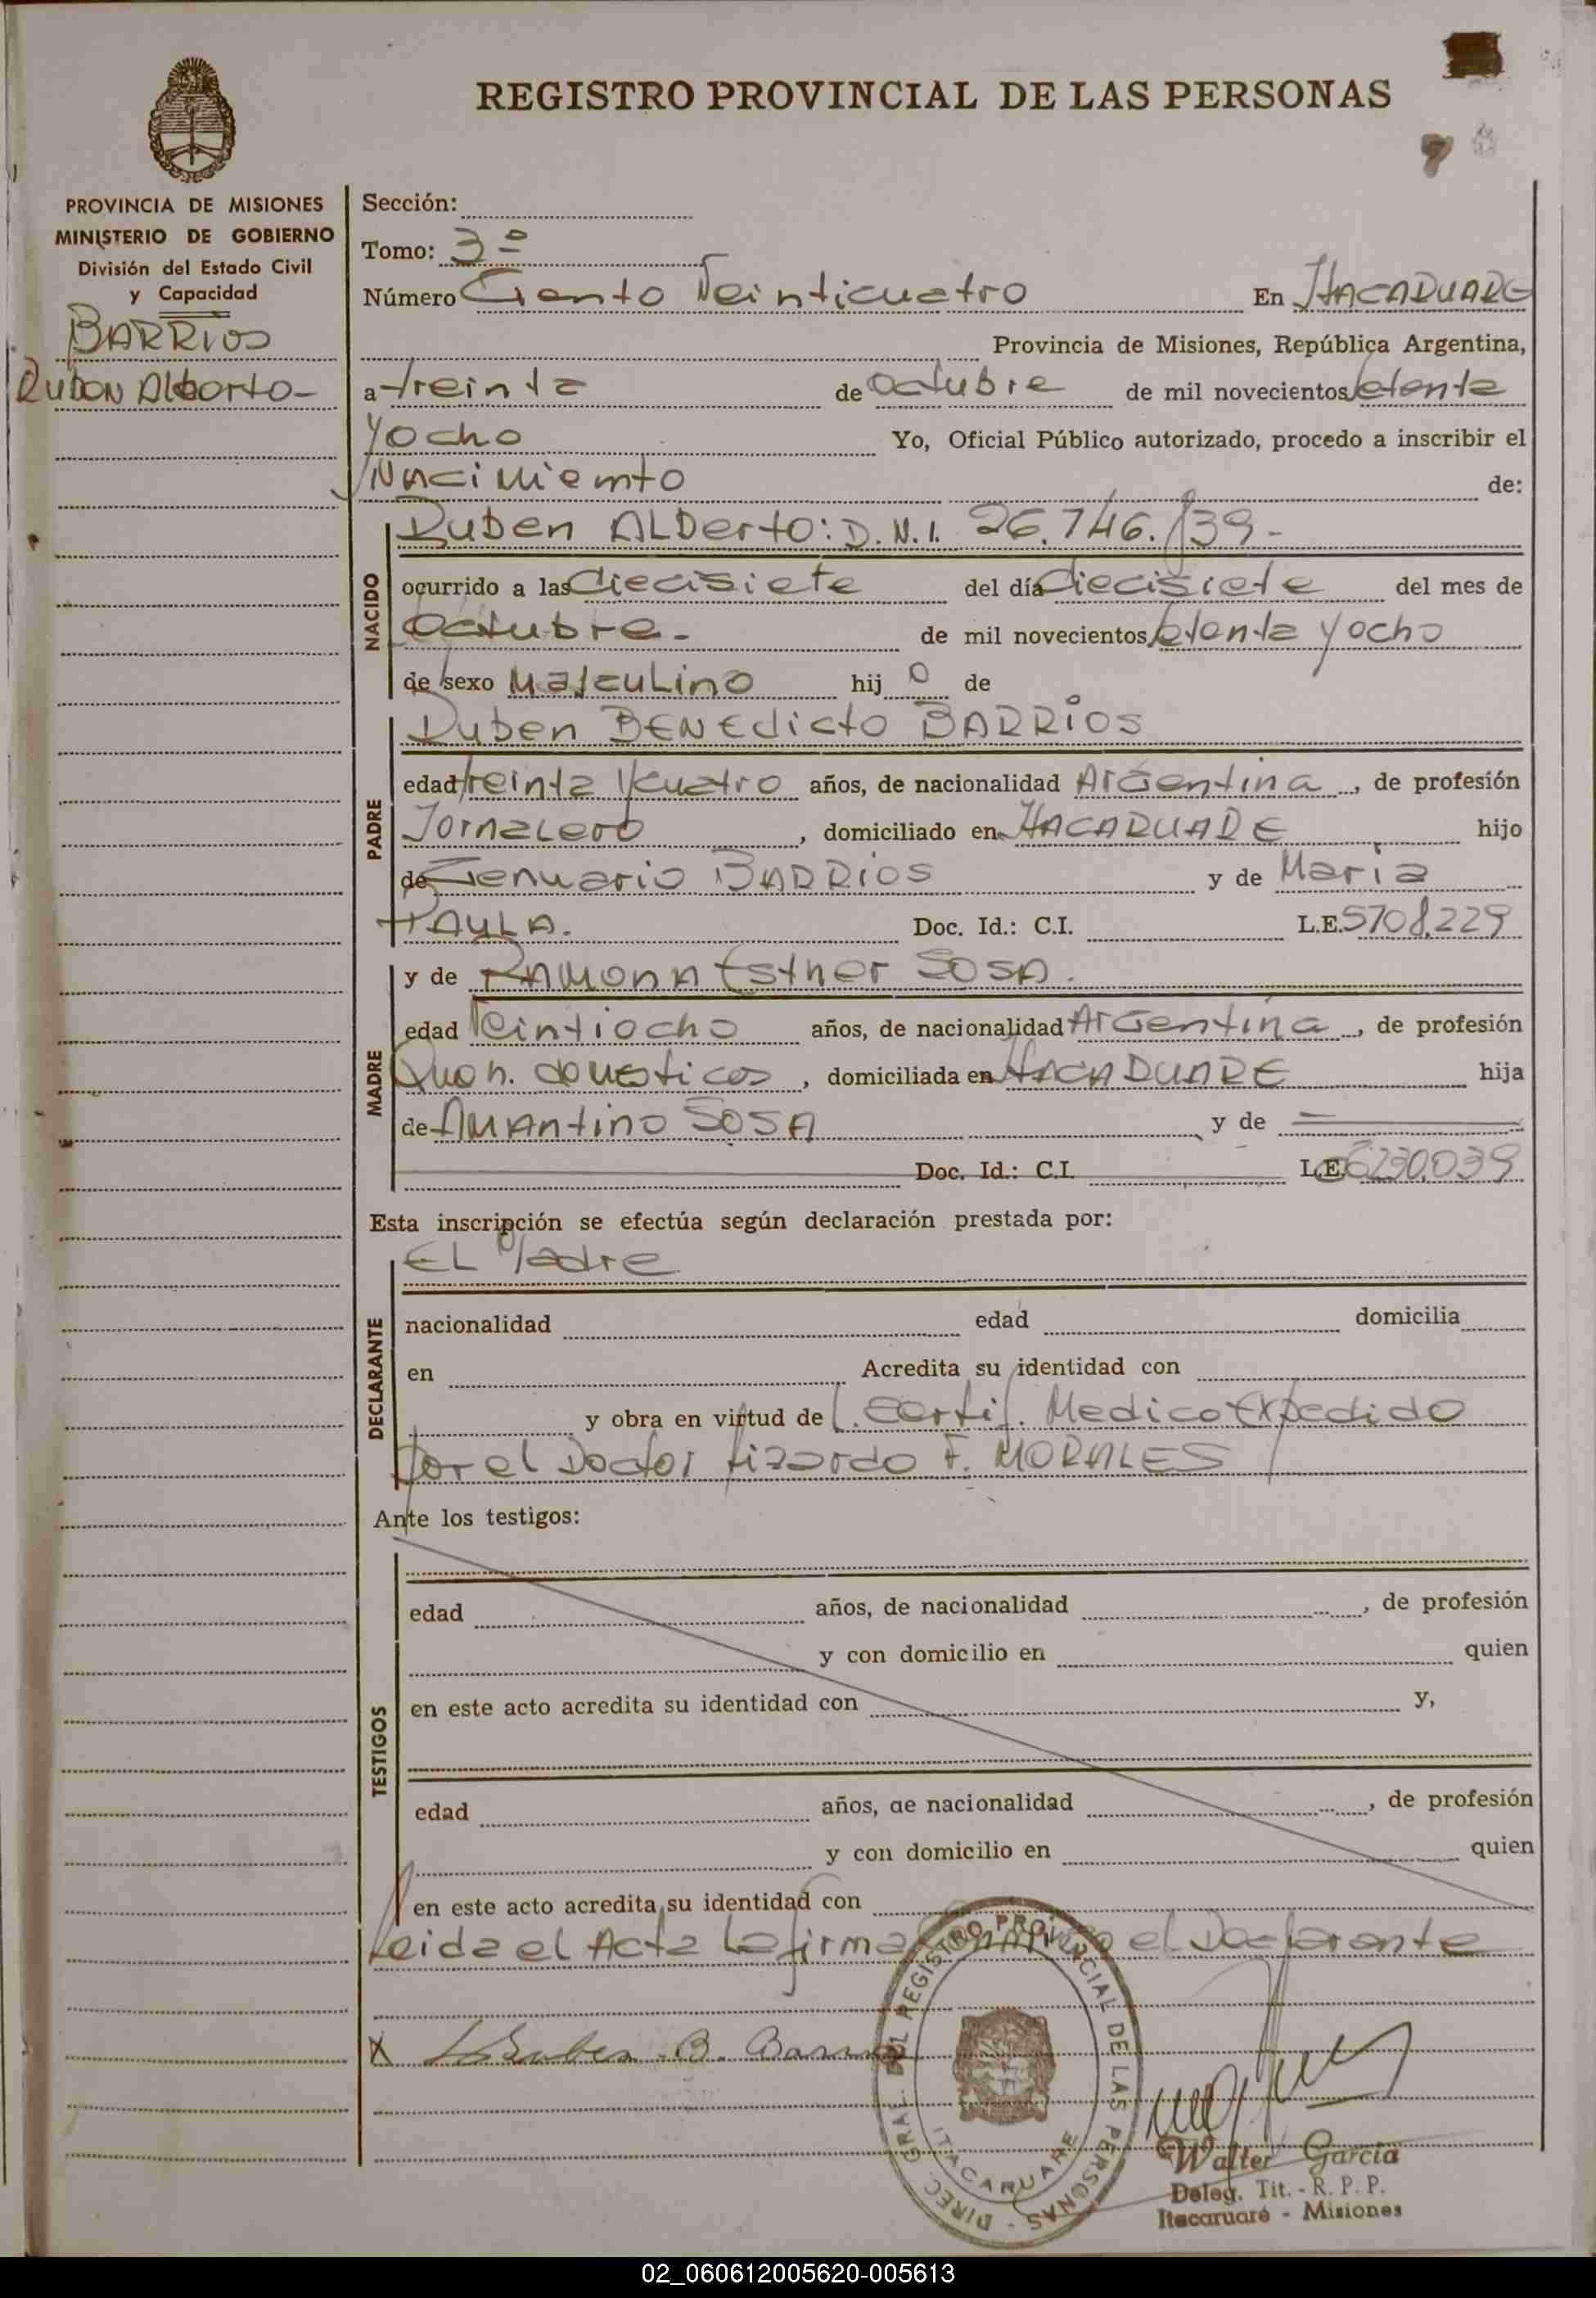 REGISTRO PROVINCIAL DE LAS PERSONAS
PROVINCIA DE MISIONES
MINISTERIO DE GOBIERNO
División del Estado Civil
y Capacidad
BARRIOS
Ruben Alberto-
Sección:
Tomo: 3º
Número Ciento Veinticuatro En ITACARUARE
Provincia de Misiones, República Argentina,
a treinta de octubre de mil novecientos setenta
y ocho Yo, Oficial Público autorizado, procedo a inscribir el
Nacimiento de:
NACIDO
Ruben ALberto: D.N.I. 26.746.139-
ocurrido a las diecisiete del día diecisiete del mes de
octubre.- de mil novecientos setenta y ocho
de sexo Masculino hij o de
PADRE
Ruben BENEdicto BARRIOS
edad treinta y cuatro años, de nacionalidad Argentina, de profesión
Jornalero, domiciliado en ITACARUARE hijo
de Genuario BARRIOS y de Maria
PAULA. Doc. Id.: C.I. L.E. 5708.229
MADRE
y de RAMONA Esther SOSA.
edad Veintiocho años, de nacionalidad Argentina, de profesión
Queh. domesticos, domiciliada en ITACARUARE hija
de AMAntino SOSA y de
Doc. Id.: C.I. L.C. 6230.039
Esta inscripción se efectúa según declaración prestada por:
DECLARANTE
EL Padre
nacionalidad edad domicilia
en Acredita su identidad con
y obra en virtud de Certif. Medico Expedido
por el Doctor Lizardo F. MORALES
Ante los testigos:
TESTIGOS
edad años, de nacionalidad , de profesión
y con domicilio en quien
en este acto acredita su identidad con y,
edad años, de nacionalidad , de profesión
y con domicilio en quien
en este acto acredita su identidad con
Leida el Acta La firma conmigo el Declarante
X Ruben B. Barrios
DIREC. GRAL. DEL REGISTRO PROVINCIAL DE LAS PERSONAS -
ITACARUARE
Walter Garcia
Deleg. Tit. - R. P. P.
Itacaruaré - Misiones
02_060612005620-005613